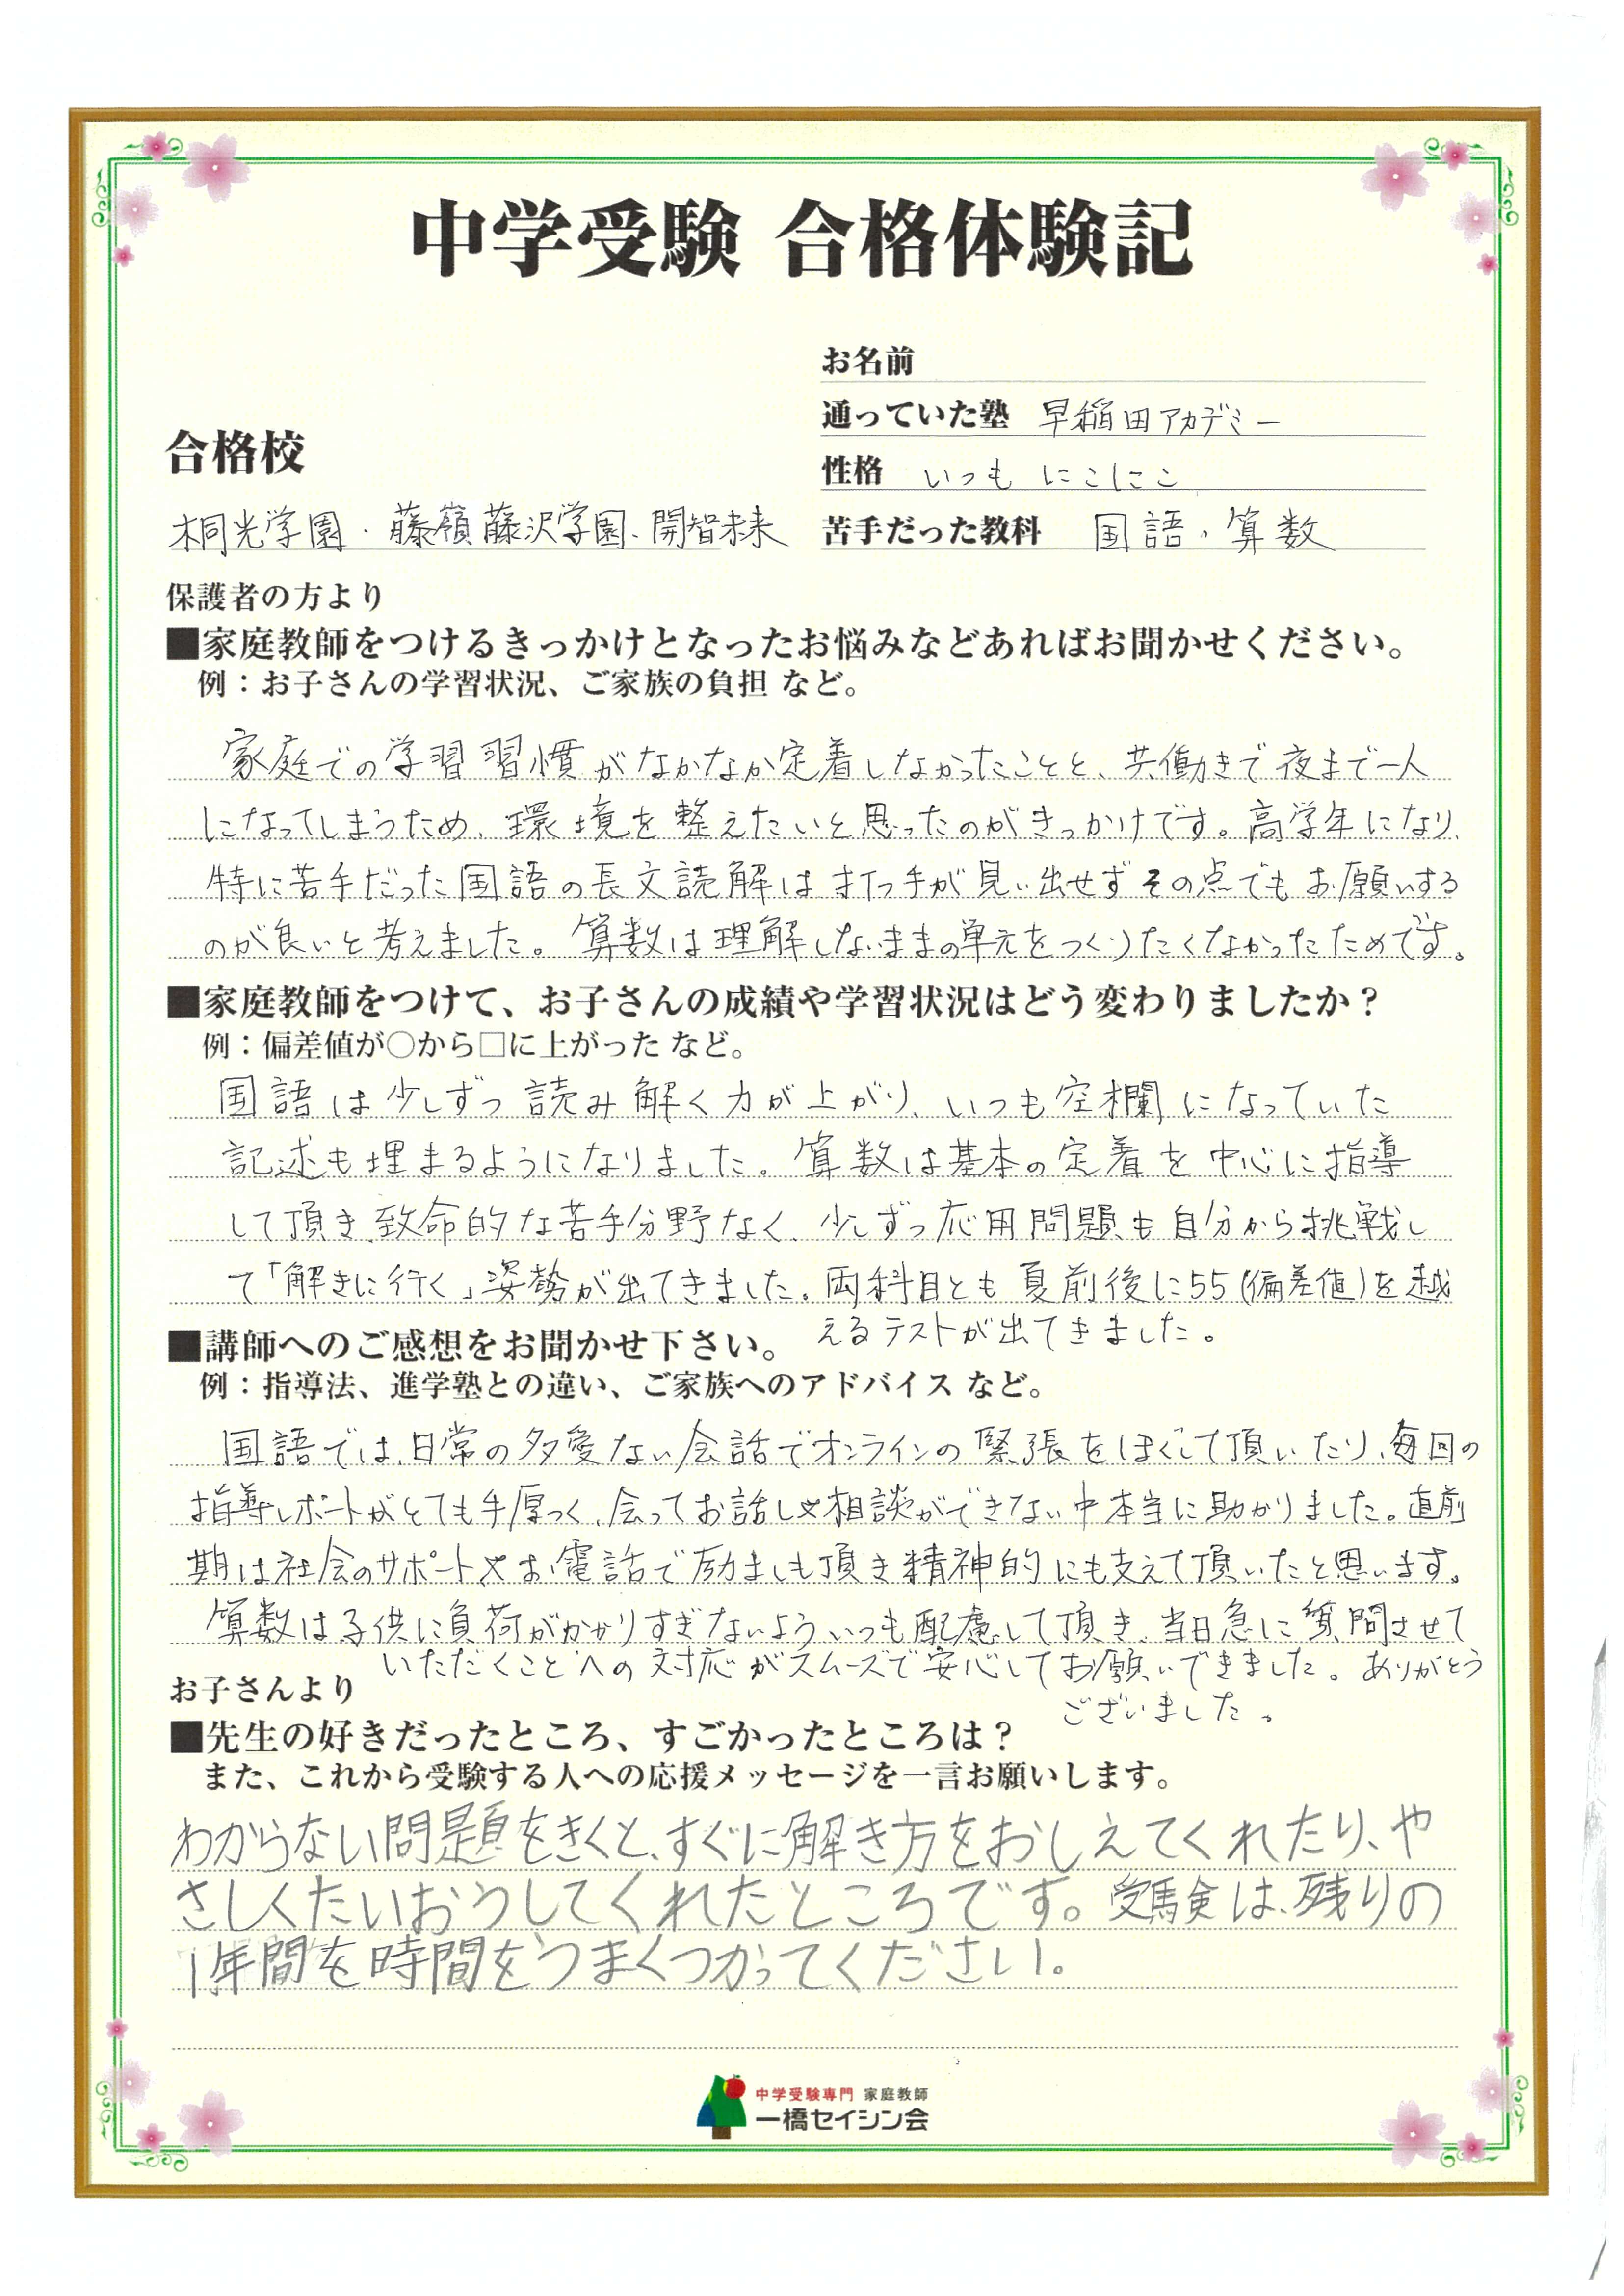 中学受験 合格体験記
お名前
通っていた塾 早稲田アカデミー
合格校
性格 いつも にこにこ
桐光学園・藤嶺藤沢学園、開智未来
苦手だった教科 国語・算数
保護者の方より
■家庭教師をつけるきっかけとなったお悩みなどあればお聞かせください。
例：お子さんの学習状況、ご家族の負担 など。
家庭での学習習慣がなかなか定着しなかったことと、共働きで夜まで一人
になってしまうため、環境を整えたいと思ったのがきっかけです。高学年になり、
特に苦手だった国語の長文読解は打つ手が見い出せずその点でもお願いする
のが良いと考えました。算数は理解しないままの単元をつくりたくなかったためです。
■家庭教師をつけて、お子さんの成績や学習状況はどう変わりましたか？
例：偏差値が○から□に上がった など。
国語は少しずつ読み解く力が上がり、いつも空欄になっていた
記述も埋まるようになりました。算数は基本の定着を中心に指導
して頂き、致命的な苦手分野なく、少しずつ応用問題も自分から挑戦し
て「解きに行く」姿勢が出てきました。両科目とも夏前後に55(偏差値)を越
えるテストが出てきました。
■講師へのご感想をお聞かせ下さい。
例：指導法、進学塾との違い、ご家族へのアドバイス など。
国語では、日常の多愛ない会話でオンラインの緊張をほぐして頂いたり、毎回の
指導レポートがとても手厚つく、会ってお話しや相談ができない中本当に助かりました。直前
期は社会のサポートやお電話で励ましも頂き精神的にも支えて頂いたと思います。
算数は子供に負荷がかかりすぎないよういつも配慮して頂き、当日急に質問させて
いただくことへの対応がスムーズで安心してお願いできました。ありがとう
ございました。
お子さんより
■先生の好きだったところ、すごかったところは？
また、これから受験する人への応援メッセージを一言お願いします。
わからない問題をきくと、すぐに解き方をおしえてくれたり、や
さしくたいおうしてくれたところです。受験は、残りの
1年間を時間をうまくつかってください。
中学受験専門 家庭教師
一橋セイシン会